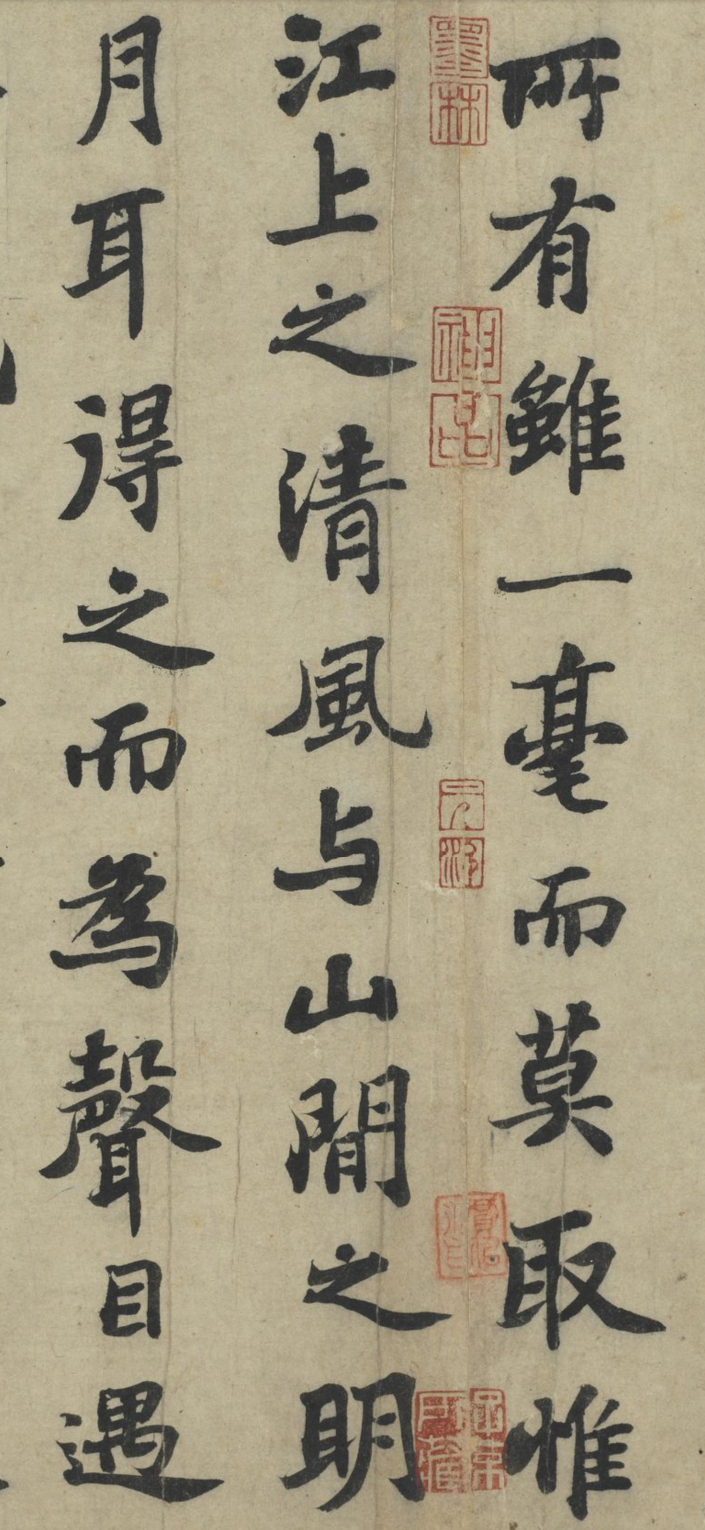 所有雖一毫而莫取惟
江上之清風与山間之明
月耳得之而為聲目遇
墨林
神品